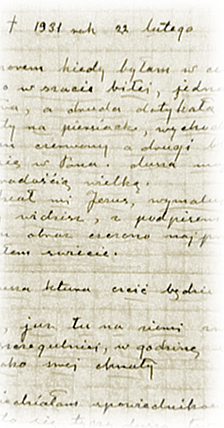 † 1931 rok 22 lutego
kiedy byłam w ce
w szacie białej, jedn
a druga dotykała
na piersiach, wycho
czerwony a drugi b
w Pana, dusza m
radością wielką.
mi Jezus, wymalu
widzisz, z podpisem
obraz czczono najp
świecie.
która czcić będzie
już tu na ziemi
szczególniej, w godzinę
jako swej chwały
spowiednikow